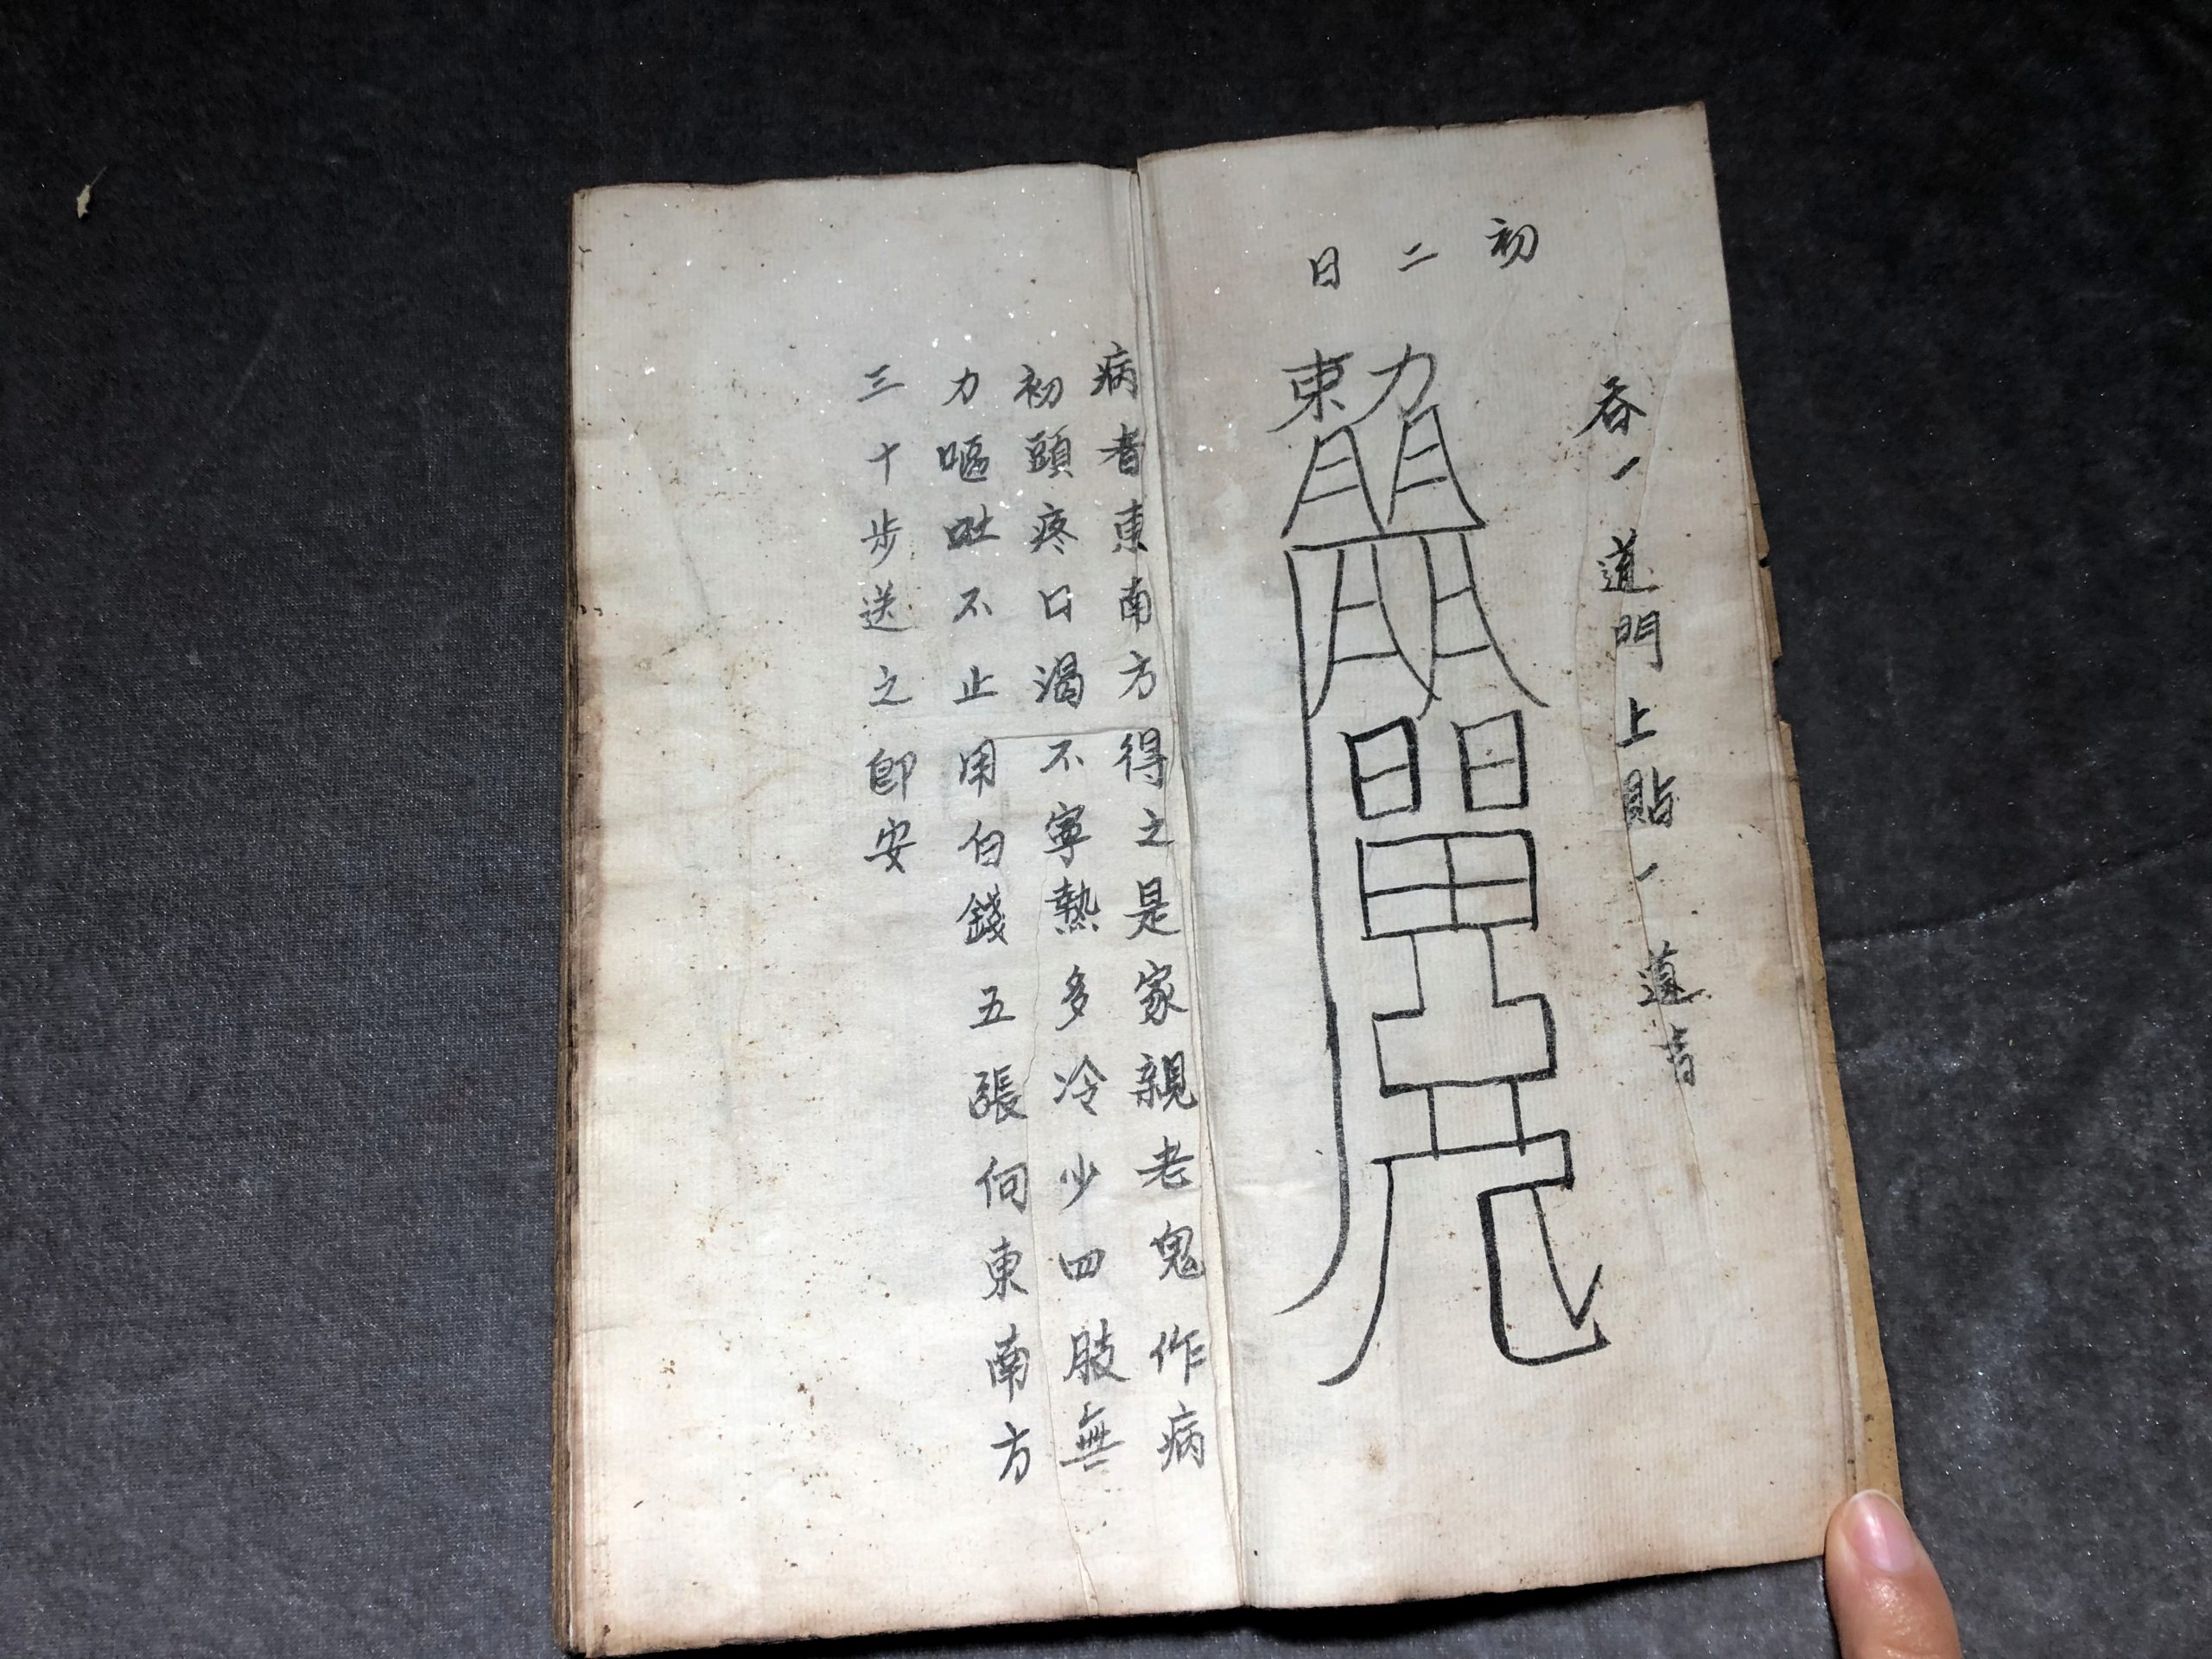 吞一道門上貼一道吉
初二日
勅
病者東南方得之是家親老鬼作病
初頭疼口渴不寧熱多冷少四肢無
力嘔吐不止用白錢五張向東南方
三十步送之即安